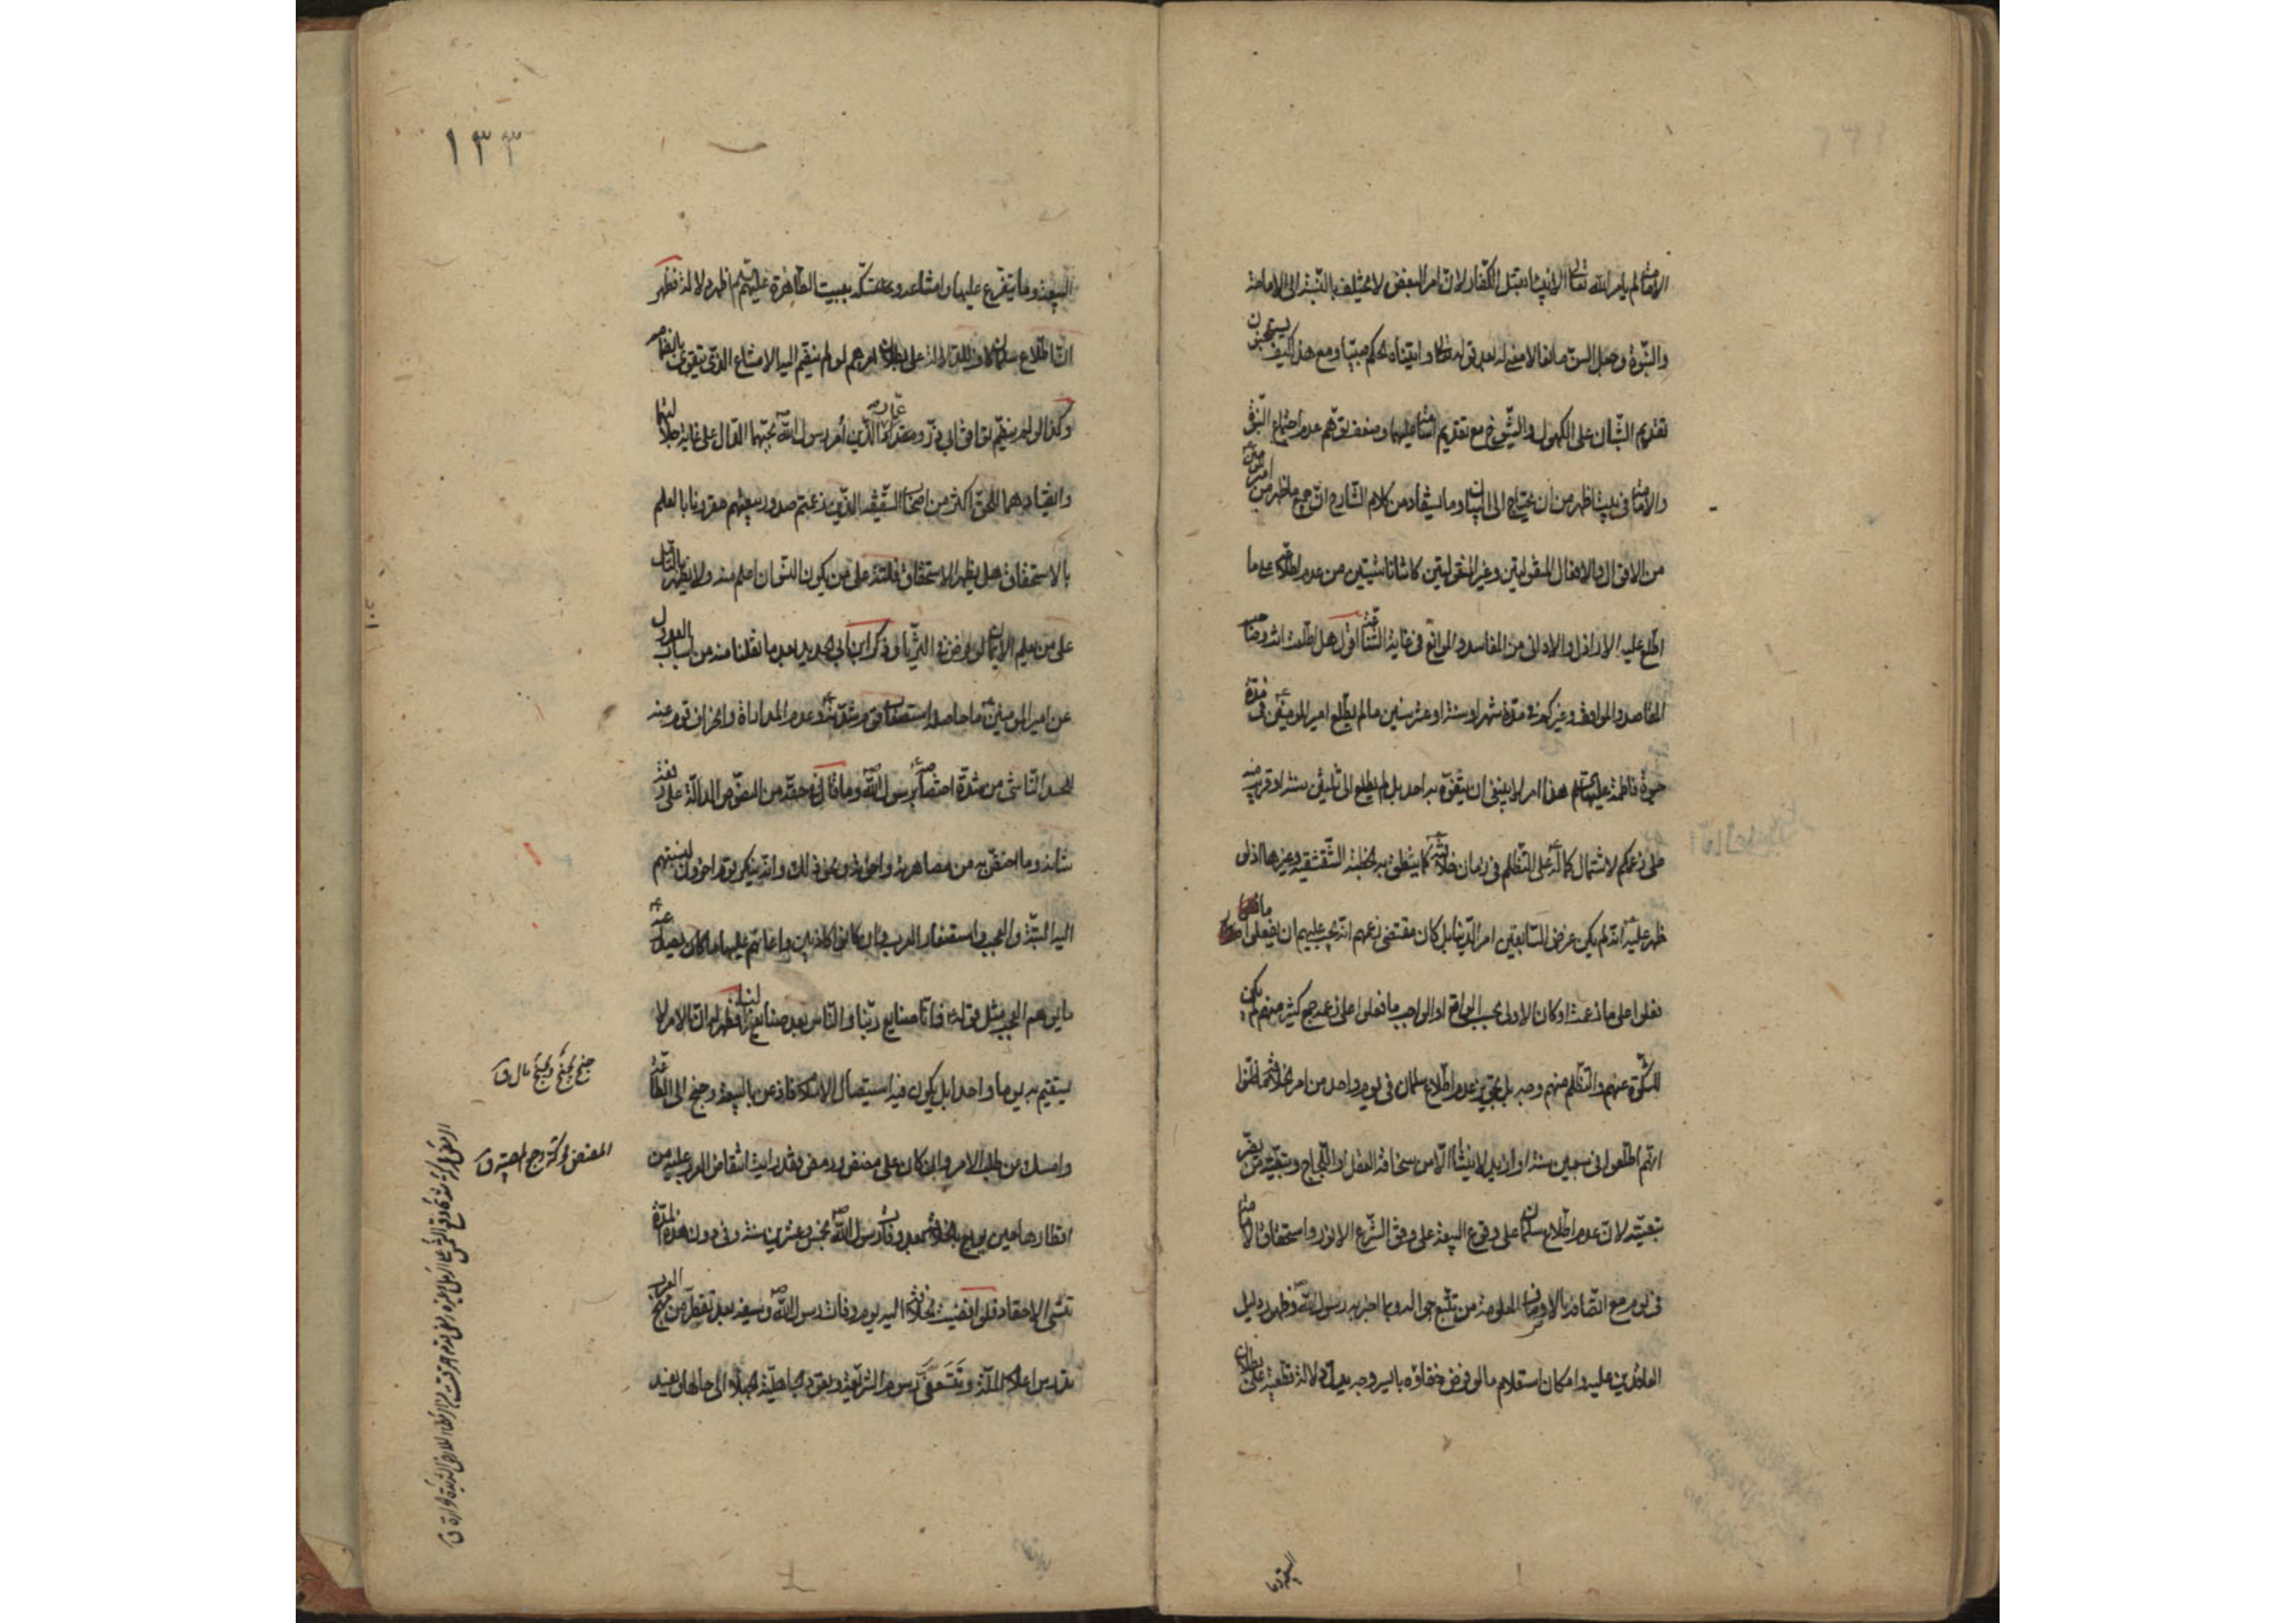 الامامة لم يأمر الله تعالى الانبياء بقتل الكفار لان امر البعض لا يختلف بالنسبة الى الامامة
والنبوة وجعل السن مانعا لا معنى له بعد قوله تعالى واتيناه الحكم صبيا ومع هذا كيف يستحق
تقديم الشبان على الكهول والشيوخ مع تقديم اسامة عليهما وضعف توهم عدم اجتماع النبوة
والامامة في بيت اظهر من ان يحتاج الى البيان وما يستفاد من كلام الشارح ان جميع ما ظهر من امير المؤمنين
من الاقوال والافعال المنقولتين وغير المنقولتين كانتا ناشئتين من عدم اطلاعه على ما
اطلع عليه الاراذل والاداني من المفاسد والموانع في غاية الشناعة اقول هل اطلعت انت وصاحب
المقاصد والمواقف وغيركم في مدة شهر او سنة او عشر سنين ما لم يطلع امير المؤمنين في مدة
حيوة فاطمة عليها السلم هذا امر لا ينبغي ان يتفوه به احد بل لم يطلع الى ثلثين سنة او قريب منه
على زعمكم لاشتمال كلماته على التظلم في زمان خلافته كما ينطق به الخطبة الشقشقية وغيرها اذ لو
ظهر عليه انه لم يكن غرض السابقين امر الدنيا بل كان مقتضى زعمهم انه يجب عليهم ان يفعلوا ما
فعلوا على ما زعمت او كان الاولى بحسب الواقع او الواجب ما فعلوا على زعم جمع كثير منهم لم يكن
للشكوة عنهم والتظلم منهم وجه بل تجويز عدم اطلاع سلمان في يوم واحد من امر الخلافة
انهم اطلعوا في سبعين سنة او ازيد لا ينشأ الا من سخافة العقل او اللجاج
تبعيته لان عدم اطلاع سلمان على وقوع البيعة على وفق الشرع الانور واستحقاق الامامة
في يوم مع اتصافه بالاوصاف المعلومة من تتبع حواله وبما اخبر به رسول الله وظهور دليل
العاقدين عليه وامكان استعلام ما لو فرض خفاؤه بايسر وجه يدل دلالة قطعية على بطلان
البيعة وما
١٣٣
البيعة وما يتفرع عليها وامتناعه وتمسكه ببيت الطاهرة عليهم السلم اظهر دلالة فظهر
ان اطلاع سلمان كان في الدلالة على بطلان امرهم لو لم ينضم اليه الامتناع الذي يتقوى بالغضا
وكذا لو لم ينضم توافق ابي ذر ومقداد وعمار الذين امر رسول الله بحبهما الدال على غاية جلالتهما
وانقيادهما للحق اكثر من اصحاب السقيفة الذين زعمتم صدور بيعتهم مقرونا بالعلم
بالاستحقاق هل يظهر الاستحقاق فلتة على من يكون النسوان اعلم منه ولا يظهر بالتأمل
على من يعلم الايمان لو فرض في الثريا وذكر ابن ابي الحديد بعد ما نقلنا منه من اسباب العدول
عن امير المؤمنين ما حاصله استصعاب قوم شدته وعدم المداراة وانحراف قوم عنه
للحسد الناشئ من شدة اختصاصه برسول الله وما قال في حقه من النصوص الدالة على رفعة
شانه وما اختص به من مصاهرته واخوته ونحو ذلك وانه تنكر قوم اخرون لنسبتهم
اليه التيه والعجب واستصغار العرب وان كانوا كاذبين واعانهم عليها ما كان يصدر عنه
ما يوهم العجب مثل قوله فانا صنايع ربنا والناس بعد صنايع لنا فظهر له ان الامر لا
يستقيم به يوما واحدا بل يكون فيه استيصال الاسلام فاذعن بالبيعة وجنح الى الطاعة
وامسك عن طلب الامر وان كان على مضض ورمض وقد رايت انتقاض العرب عليه من
اقطارها حين بويع بالخلافة بعد وفات رسول الله بخمس وعشرين سنة وفي دون هذه المدة
تنسى الاحقاد فلو افضيت الخلافة اليه يوم وفات رسول الله وسيفه بعد تقطر من مهج العرب
تدرس اعلام الملة وتتعفى رسوم الشريعة ويعود الجاهلية الجهلاء الى حالها ويفسد
جنح يجنح ويجنح مال ق
المضض محركة وجع المصيبة ق